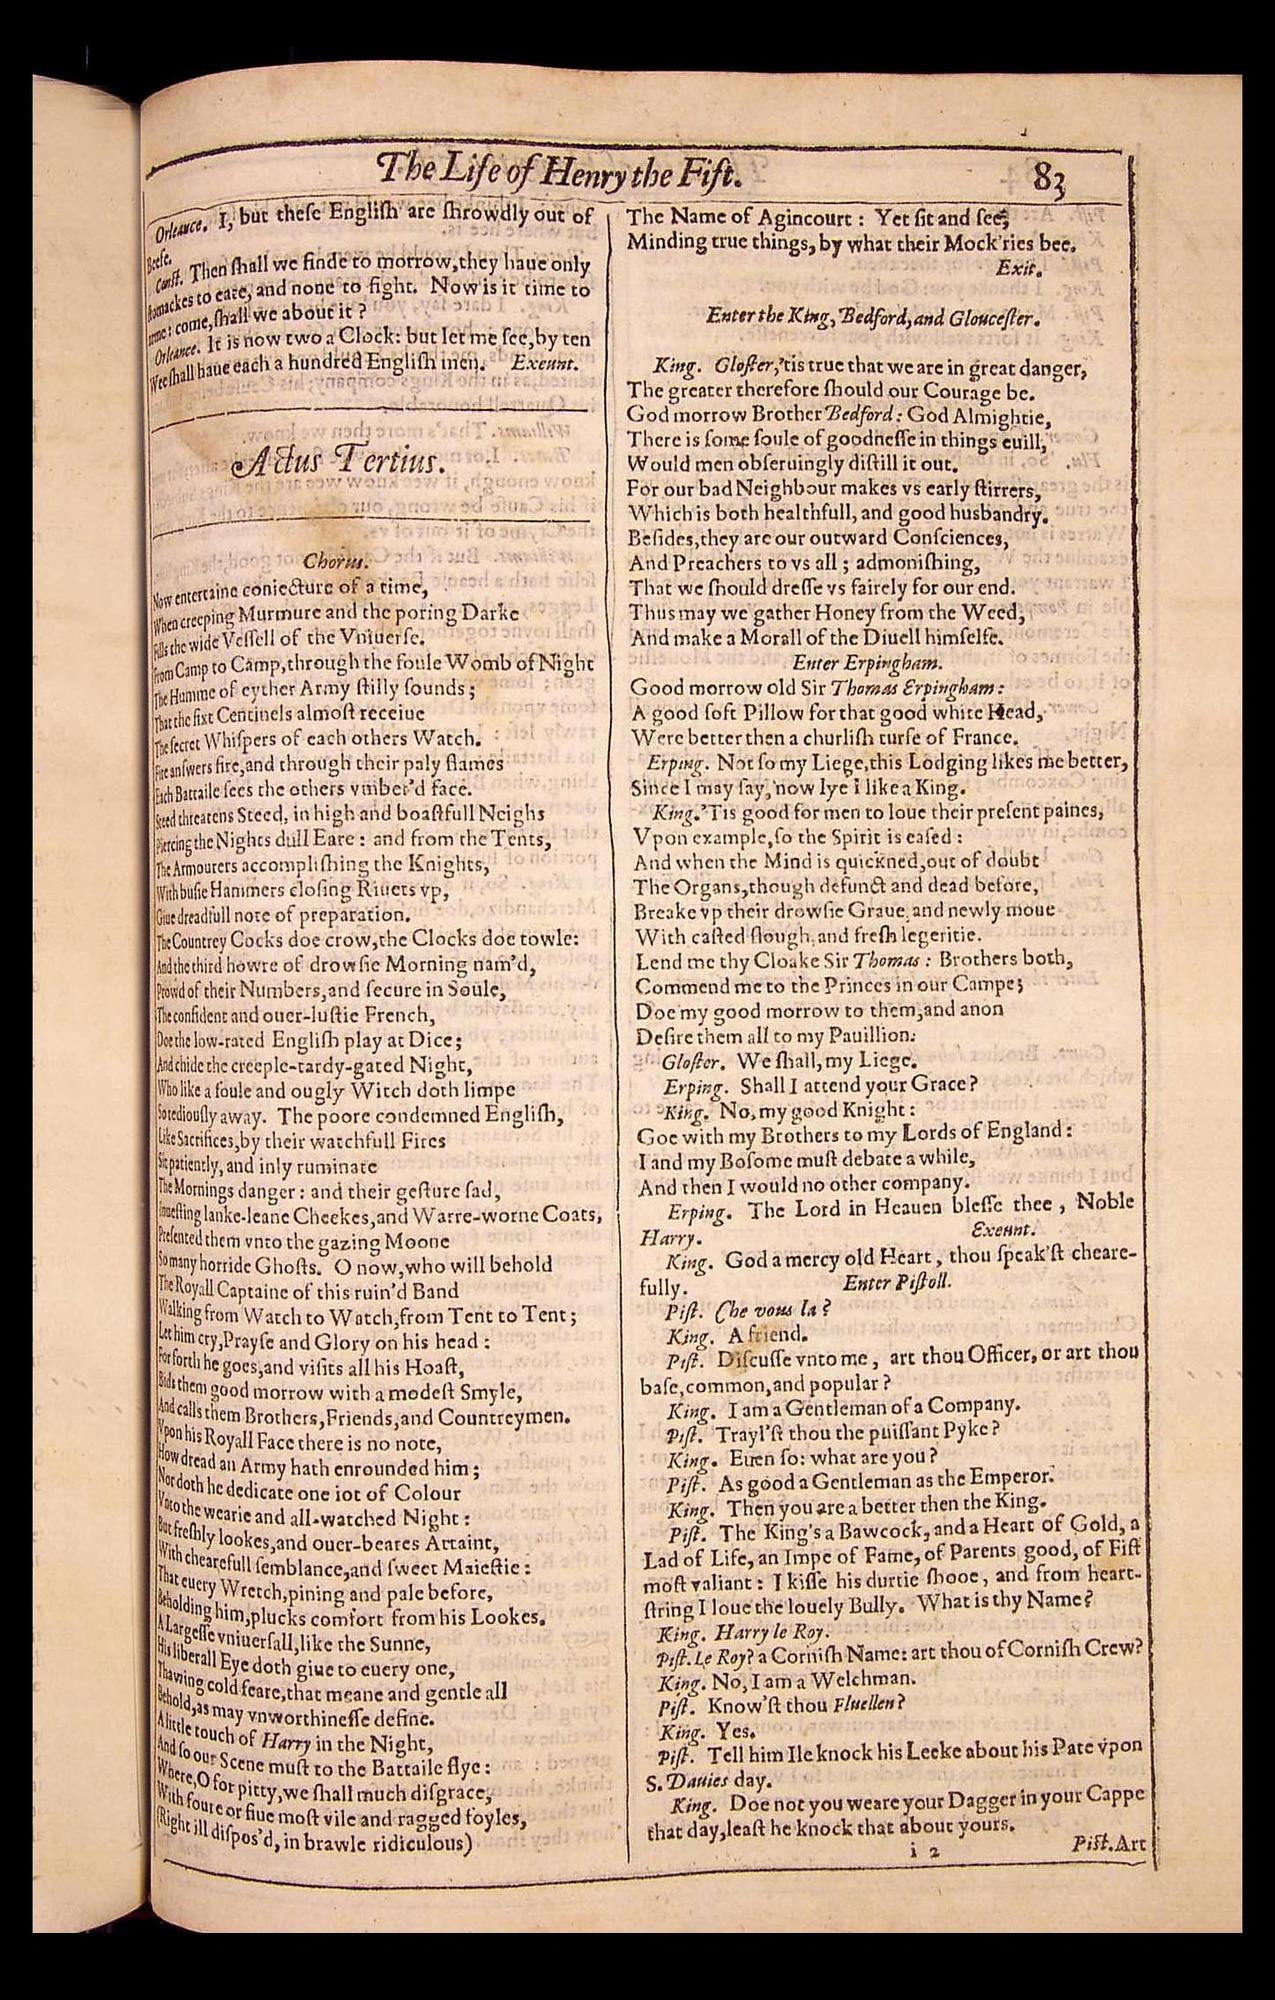 The Life of Henry the Fift. 83
Orleance. I, but these English are shrowdly out of
Beefe.
Const. Then shall we finde to morrow, they haue only
stomackes to eate, and none to fight. Now is it time to
arme: come, shall we about it?
Orleance. It is now two a Clock: but let me see, by ten
Wee shall haue each a hundred English men. Exeunt.
Actus Tertius.
Chorus.
Now entertaine coniecture of a time,
When creeping Murmure and the poring Darke
Fills the wide Vessell of the Vniuerse.
From Camp to Camp, through the foule Womb of Night
The Humme of eyther Army stilly sounds;
That the fixt Centinels almost receiue
The secret Whispers of each others Watch.
Fire answers fire, and through their paly flames
Each Battaile sees the others vmber'd face.
Steed threatens Steed, in high and boastfull Neighs
Piercing the Nights dull Eare: and from the Tents,
The Armourers accomplishing the Knights,
With busie Hammers closing Riuets vp,
Giue dreadfull note of preparation.
The Countrey Cocks doe crow, the Clocks doe towle:
And the third howre of drowsie Morning nam'd,
Prowd of their Numbers, and secure in Soule,
The confident and ouer-lustie French,
Doe the low-rated English play at Dice;
And chide the creeple-tardy-gated Night,
Who like a foule and ougly Witch doth limpe
So tediously away. The poore condemned English,
Like Sacrifices, by their watchfull Fires
Sit patiently, and inly ruminate
The Mornings danger: and their gesture sad,
Inuesting lanke-leane Cheekes, and Warre-worne Coats,
Presented them vnto the gazing Moone
So many horride Ghosts. O now, who will behold
The Royall Captaine of this ruin'd Band
Walking from Watch to Watch, from Tent to Tent;
Let him cry, Prayse and Glory on his head:
For forth he goes, and visits all his Hoast,
Bids them good morrow with a modest Smyle,
And calls them Brothers, Friends, and Countreymen.
Vpon his Royall Face there is no note,
How dread an Army hath enrounded him;
Nor doth he dedicate one iot of Colour
Vnto the wearie and all-watched Night:
But freshly lookes, and ouer-beares Attaint,
With chearefull semblance, and sweet Maiestie:
That euery Wretch, pining and pale before,
Beholding him, plucks comfort from his Lookes.
A Largesse vniuersall, like the Sunne,
His liberall Eye doth giue to euery one,
Thawing cold feare, that meane and gentle all
Behold, as may vnworthinesse define.
A little touch of Harry in the Night,
And so our Scene must to the Battaile flye:
Where, O for pitty, we shall much disgrace,
With foure or fiue most vile and ragged foyles,
(Right ill dispos'd, in brawle ridiculous)
The Name of Agincourt: Yet sit and see,
Minding true things, by what their Mock'ries bee.
Exit.
Enter the King, Bedford, and Gloucester.
King. Gloster, 'tis true that we are in great danger,
The greater therefore should our Courage be.
God morrow Brother Bedford: God Almightie,
There is some soule of goodnesse in things euill,
Would men obseruingly distill it out.
For our bad Neighbour makes vs early stirrers,
Which is both healthfull, and good husbandry.
Besides, they are our outward Consciences,
And Preachers to vs all; admonishing,
That we should dresse vs fairely for our end.
Thus may we gather Honey from the Weed,
And make a Morall of the Diuell himselfe.
Enter Erpingham.
Good morrow old Sir Thomas Erpingham:
A good soft Pillow for that good white Head,
Were better then a churlish turfe of France.
Erping. Not so my Liege, this Lodging likes me better,
Since I may say, now lye I like a King.
King. 'Tis good for men to loue their present paines,
Vpon example, so the Spirit is eased:
And when the Mind is quickned, out of doubt
The Organs, though defunct and dead before,
Breake vp their drowsie Graue, and newly moue
With casted slough, and fresh legeritie.
Lend me thy Cloake Sir Thomas: Brothers both,
Commend me to the Princes in our Campe;
Doe my good morrow to them, and anon
Desire them all to my Pauillion.
Gloster. We shall, my Liege.
Erping. Shall I attend your Grace?
King. No, my good Knight:
Goe with my Brothers to my Lords of England:
I and my Bosome must debate a while,
And then I would no other company.
Erping. The Lord in Heauen blesse thee, Noble
Harry. Exeunt.
King. God a mercy old Heart, thou speak'st cheare-
fully. Enter Pistoll.
Pist. Che vous la?
King. A friend.
Pist. Discusse vnto me, art thou Officer, or art thou
base, common, and popular?
King. I am a Gentleman of a Company.
Pist. Trayl'st thou the puissant Pyke?
King. Euen so: what are you?
Pist. As good a Gentleman as the Emperor.
King. Then you are a better then the King.
Pist. The King's a Bawcock, and a Heart of Gold, a
Lad of Life, an Impe of Fame, of Parents good, of Fist
most valiant: I kisse his durtie shooe, and from heart-
string I loue the louely Bully. What is thy Name?
King. Harry le Roy.
Pist. Le Roy? a Cornish Name: art thou of Cornish Crew?
King. No, I am a Welchman.
Pist. Know'st thou Fluellen?
King. Yes.
Pist. Tell him Ile knock his Leeke about his Pate vpon
S. Dauies day.
King. Doe not you weare your Dagger in your Cappe
that day, least he knock that about yours.
i 2 Pist. Art